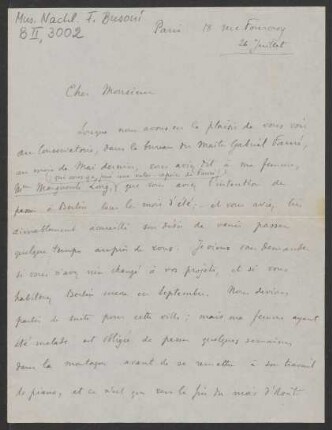 Mus. Nachl. F. Busoni
B II, 3002
Paris 18 rue Fourcroy
26 Juillet
Cher Monsieur
Lorsque nous avons eu le plaisir de vous voir
au Conservatoire, dans le bureau du Maître Gabriel Fauré,
au mois de Mai dernier, vous avez dit à ma femme,
Mme Marguerite Long, que vous aviez l'intention de
passer à Berlin tous les mois d'été, et vous avez, très
aimablement accueilli son désir de venir passer
quelque temps auprès de vous. Je viens vous demander
si vous n'avez rien changé à vos projets, et si vous
habiterez Berlin encore en Septembre. Nous devions
partir de suite pour cette ville; mais ma femme ayant
été malade est obligée de passer quelques semaines
dans la montagne avant de se remettre à son travail
de piano, et ce n'est que vers la fin du mois d'Août